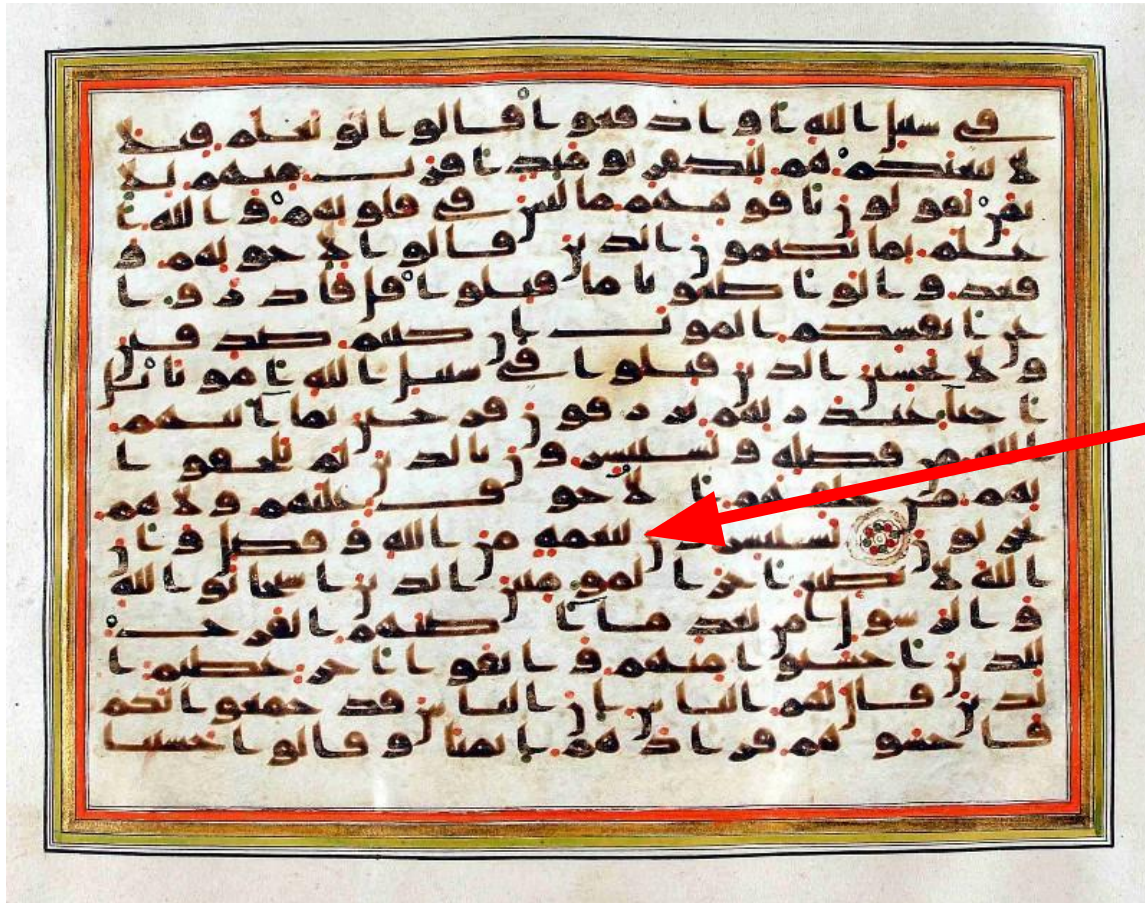 في سبيل الله او ادفعوا قالوا لو نعلم قتلا
لاتبعنكم هم للكفر يومئذ اقرب منهم للا
يمن يقولون بافوههم ما ليس في قلوبهم والله ا
علم بما يكتمون الذين قالوا لاخونهم و
قعدوا لو اطاعونا ما قتلوا قل فادروا
عن انفسكم الموت ان كنتم صدقين
ولا تحسبن الذين قتلوا في سبيل الله اموتا بل
احيا عند ربهم يرزقون فرحين بما اتيهم
الله من فضله ويستبشرون بالذين لم يلحقوا
بهم من خلفهم الا خوف عليهم ولا هم
يحزنون يستبشرون بنعمة من الله وفضل وان
الله لا يضيع اجر المومنين الذين استجابوا لله
والرسول من بعد ما اصابهم القرح
للذين احسنوا منهم واتقوا اجر عظيم ا
لذين قال لهم الناس ان الناس قد جمعوا لكم
فاخشوهم فزادهم ايمنا وقالوا حسبنا